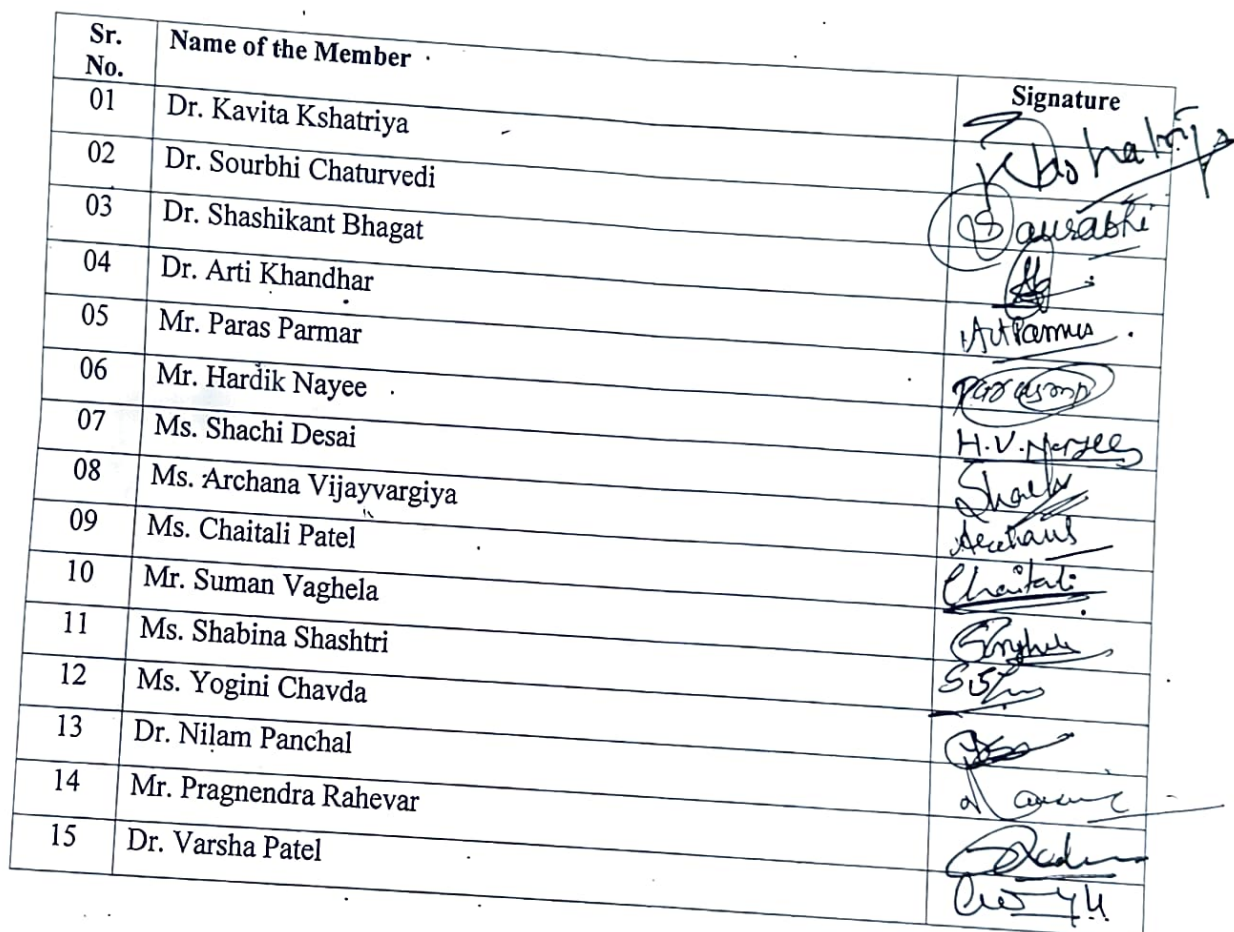 Sr. No. Name of the Member Signature
01 Dr. Kavita Kshatriya Kshatriya
02 Dr. Sourbhi Chaturvedi Saurabhi
03 Dr. Shashikant Bhagat
04 Dr. Arti Khandhar
05 Mr. Paras Parmar
06 Mr. Hardik Nayee H.V.Nayee
07 Ms. Shachi Desai
08 Ms. Archana Vijayvargiya
09 Ms. Chaitali Patel Chaitali
10 Mr. Suman Vaghela
11 Ms. Shabina Shashtri
12 Ms. Yogini Chavda
13 Dr. Nilam Panchal
14 Mr. Pragnendra Rahevar
15 Dr. Varsha Patel